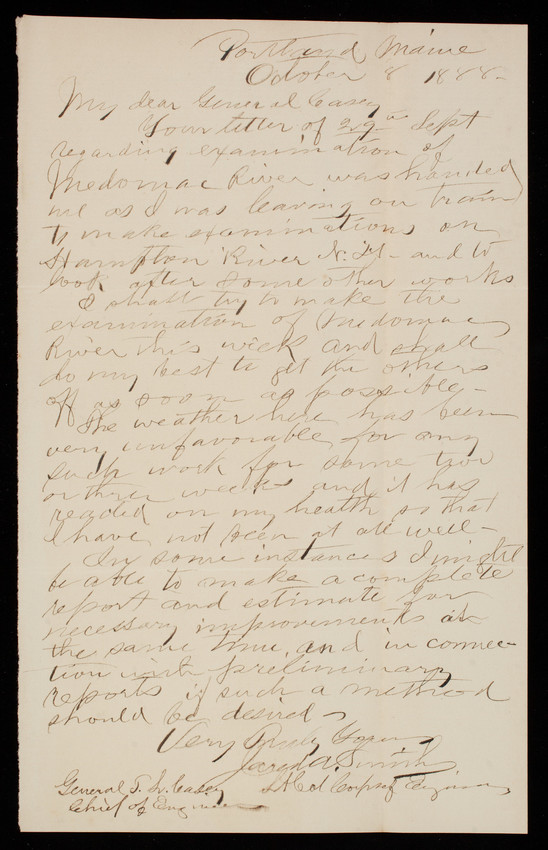 Portland Maine
October 8 1888-
My dear General Casey
Your letter of 29th Sept
regarding examination of
Medomac River was handed
me as I was leaving on train
to make examinations on
Hampton River N.H- and to
look after some other works
I shall try to make the
examination of Medomac
River this week and shall
do my best to get the others
off as soon as possible-
The weather here has been
very unfavorable for any
such work for some two
or three weeks and it has
reacted on my health so that
I have not been at all well-
In some instances I might
be able to make a complete
report and estimate for
necessary improvements at
the same time, and in connec-
tion with preliminary
reports if such a method
should be desired-
Very Truly Yours
Jared A Smith
Lt Col Corps of Engineers
General T. L. Casey
Chief of Engineers